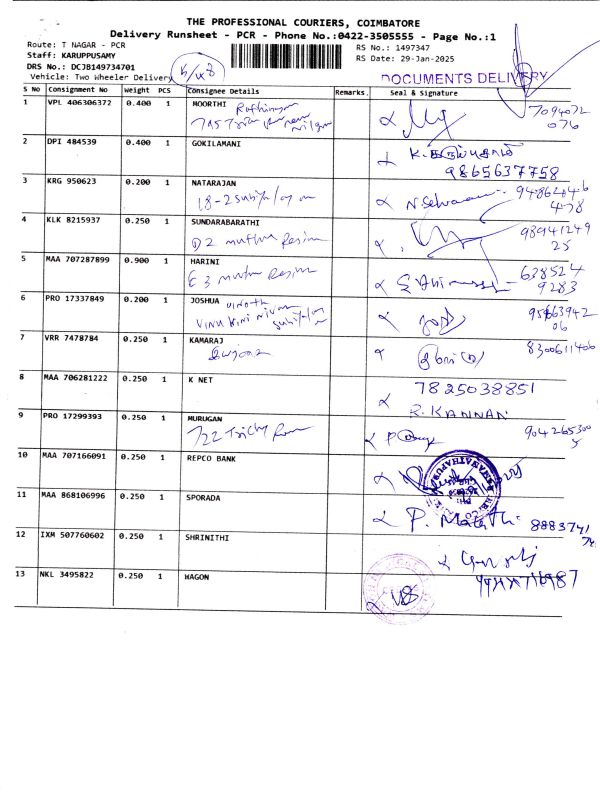 THE PROFESSIONAL COURIERS, COIMBATORE
Delivery Runsheet - PCR - Phone No.:0422-3505555 - Page No.:1
Route: T NAGAR - PCR
RS No.: 1497347
Staff: KARUPPUSAMY
RS Date: 29-Jan-2025
DRS No.: DCJB149734701
Vehicle: Two Wheeler Delivery
DOCUMENTS DELIVERY
S No Consignment No Weight PCS Consignee Details Remarks. Seal & Signature
1 VPL 406306372 0.400 1 MOORTHI
7094072
076
2 DPI 484539 0.400 1 GOKILAMANI
9865637758
3 KRG 950623 0.200 1 NATARAJAN
4 KLK 8215937 0.250 1 SUNDARABARATHI
D2 muthu
98941249
25
5 MAA 707287899 0.900 1 HARINI
E3 muthu
638524
9283
6 PRO 17337849 0.200 1 JOSHUA
06
7 VRR 7478784 0.250 1 KAMARAJ
8300611406
8 MAA 706281222 0.250 1 K NET
7825038851
R. KANNAN
9 PRO 17299393 0.250 1 MURUGAN
7/22 Trichy
10 MAA 707166091 0.250 1 REPCO BANK
11 MAA 868106996 0.250 1 SPORADA
8883741
12 IXM 507760602 0.250 1 SHRINITHI
13 NKL 3495822 0.250 1 HAGON